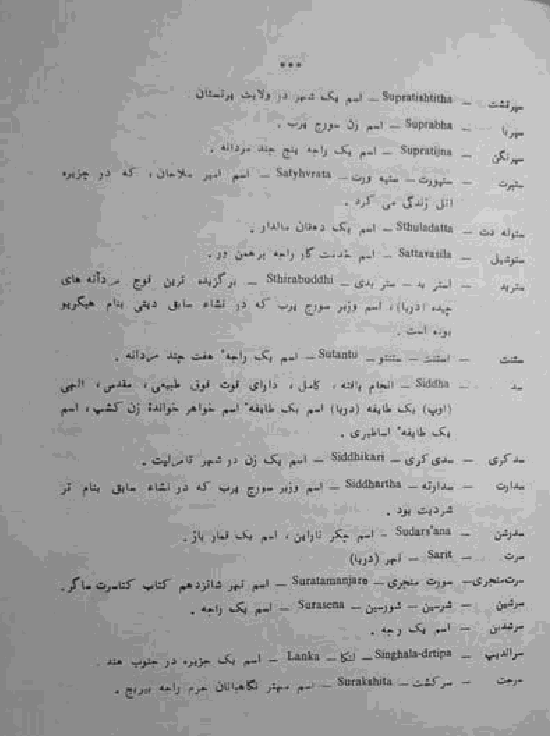 ***
سپرتشت — Supratishtitha — اسم یک شهر در ولایت پرتستان
سپربا — Suprabha — اسم زن سورج پرب .
سپرتگن — Supratijna — اسم یک راجه پنج چند مردانه .
ستپرت — ستهورت — ستیه ورت — Satyhvrata — اسم امیر ملاحان ، که در جزیره
اتل زندگی می کرد .
ستوله دت — Sthuladatta — اسم یک دهقان مالدار .
ستوشیل — Sattavasila — اسم خدمت گار راجه برهمن ور .
ستربد — استر بد — ستر بدی — Sthirabuddhi — برگزیده ترین فوج مردآنه های
چیده (دریا) ، اسم وزیر سورج پرب که در نشاء سابق دیتی بنام هیگریو
بوده است .
ستنت — استنت — ستنتو — Sutantu — اسم یک راجه ٔ هفت چند مردانه .
سد — Siddha — انجام یافته ، کامل ، دارای قوت فوق طبیعی ، مقدس ، الهی
(اوپ) یک طایفه (دریا) اسم یک طایفه ٔ اسم خواهر خواندهٔ زن کشپ ، اسم
یک طایفه ٔ اساطیری .
سدکری — سدی کری — Siddhikari — اسم یک زن در شهر تامرلپت .
سدارت — سدارته — Siddhartha — اسم وزیر سورج پرب که در نشاء سابق بنام تر
شردیت بود .
سدرشن — Sudars'ana — اسم چکر ناراین ، اسم یک قمار باز .
سرت — Sarit — نهر (دریا)
سرت‌منجری — سورت منجری — Suratamanjare — اسم نهر شانزدهم کتاب کتاسرت ساگر .
سرشین — شرسین — شورسین — Surasena — اسم یک راجه .
سرشدین — اسم یک رجه .
سراندیپ — Singhala-drtipa — لنکا — Lanka — اسم یک جزیره در جنوب هند .
سرجت — سرکشت — Surakshita — اسم مهتر نگاهبانان حرم راجه بیربج .